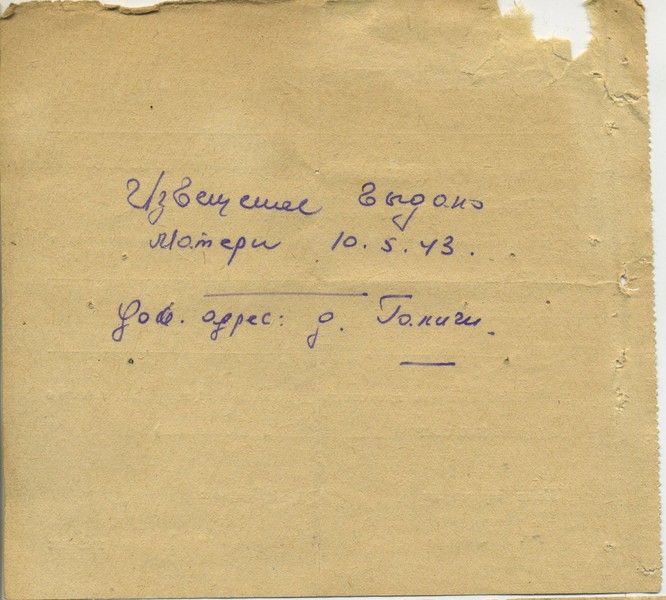 Извещение выдано
матери 10.5.43.
Дом. адрес: д. Голичи.